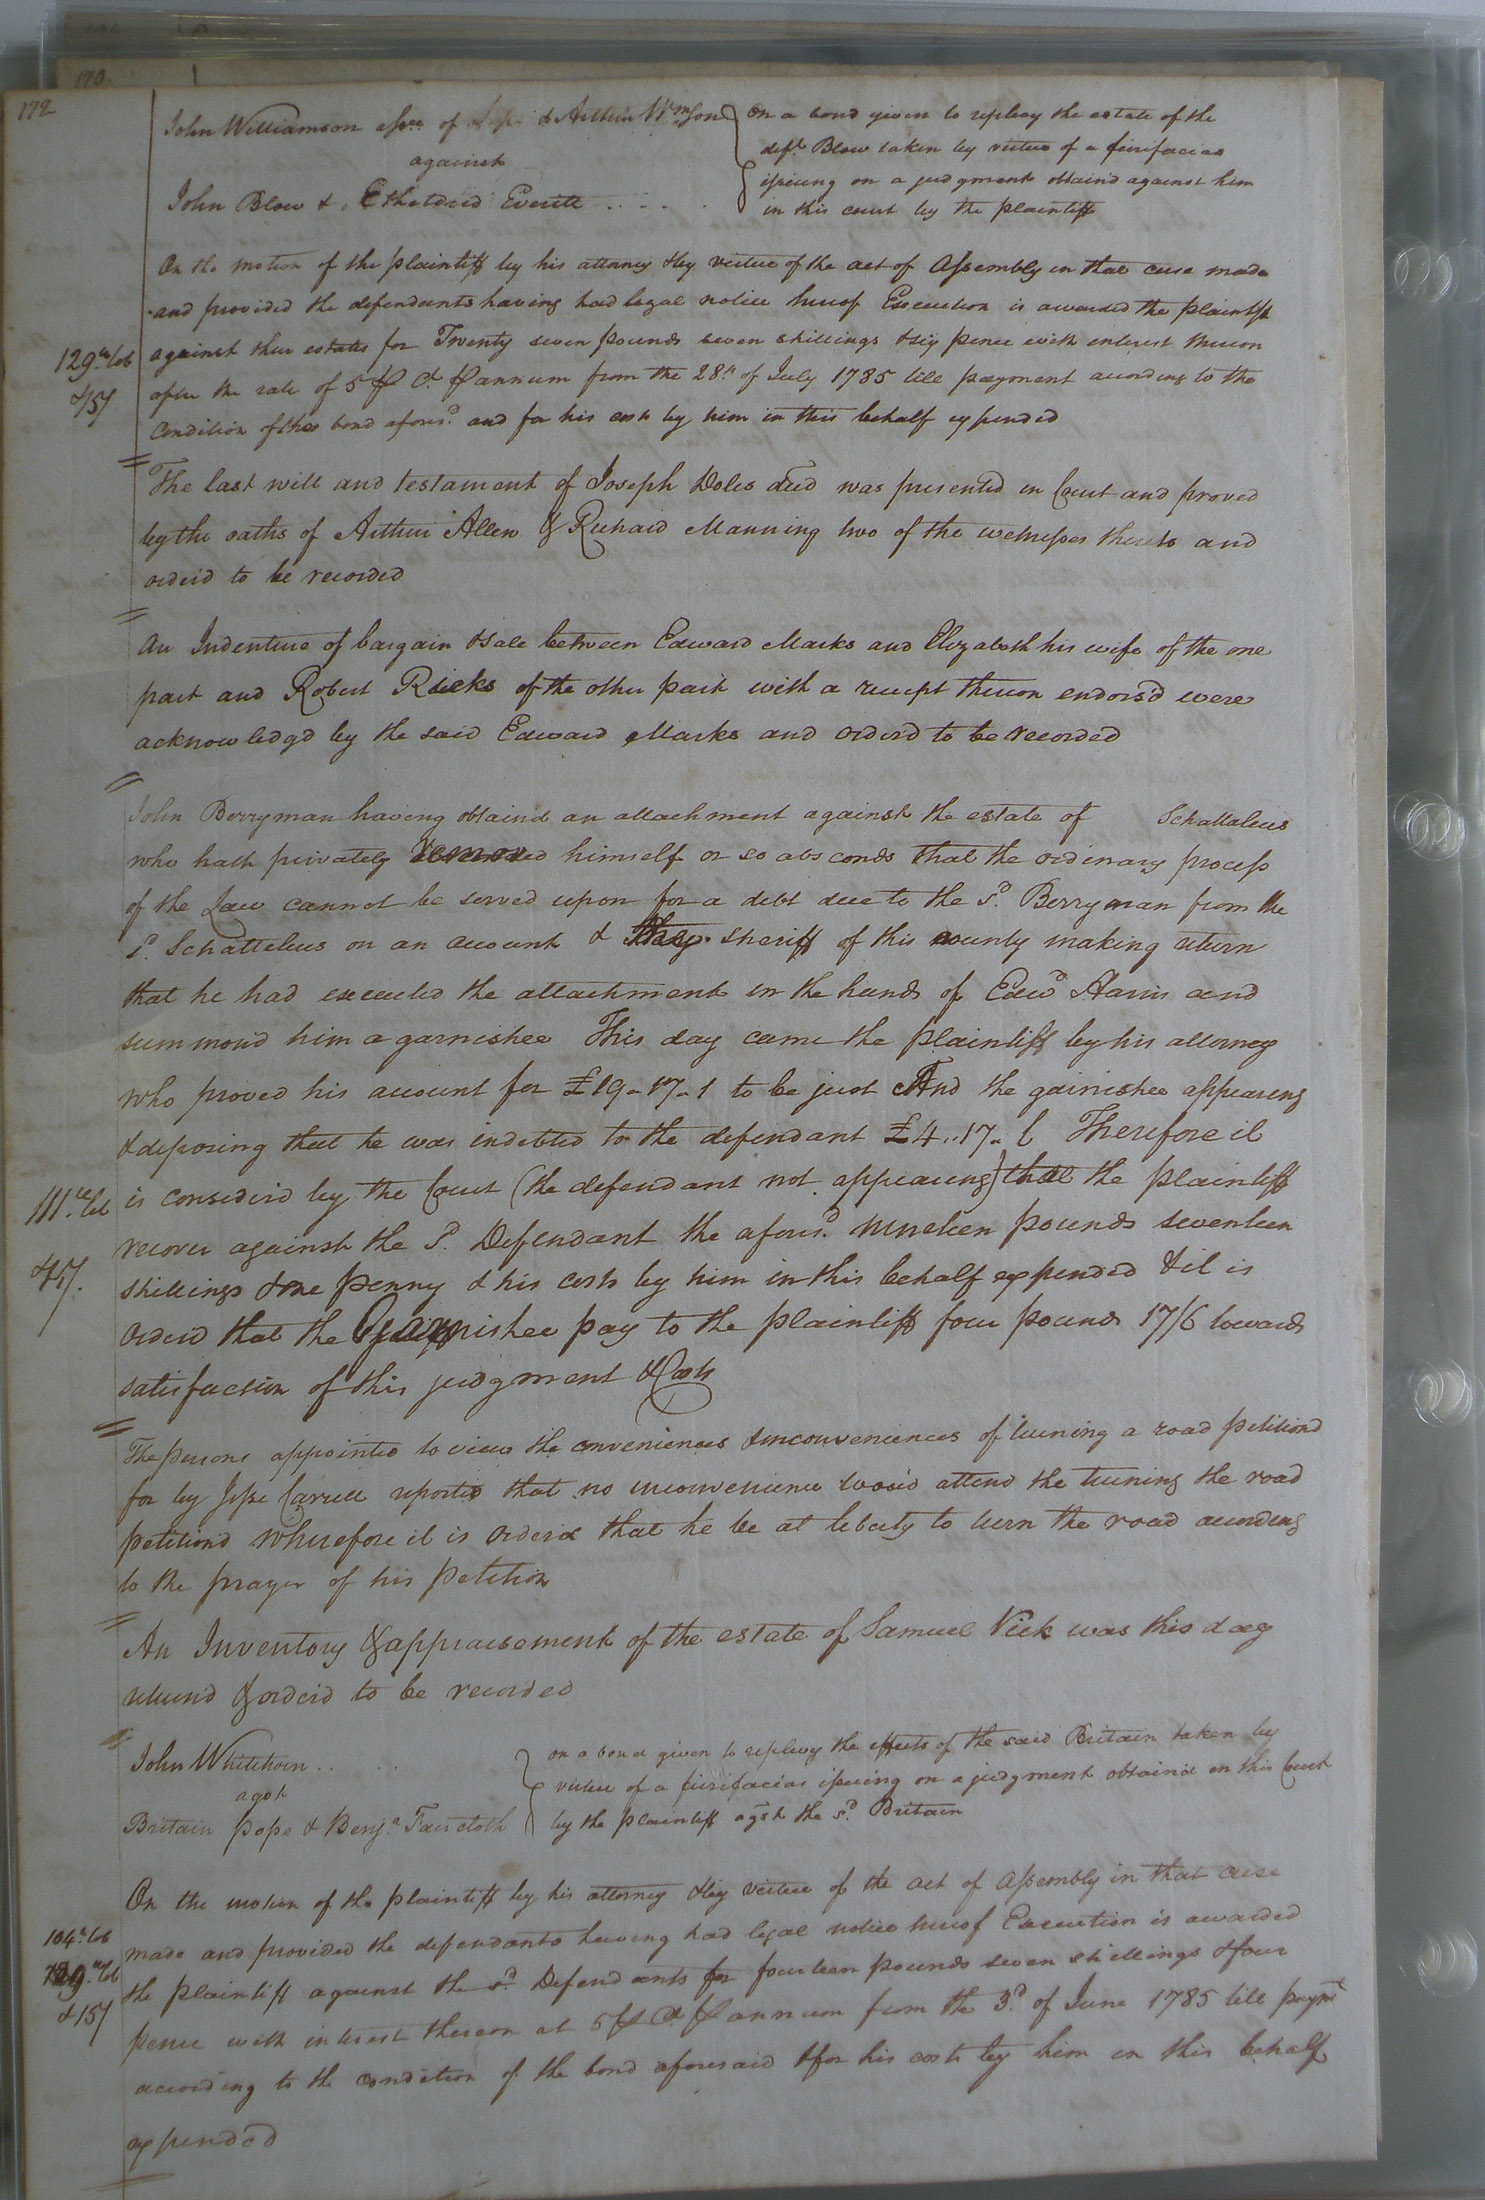 170.
172
John Williamson assee of & Arthur Wmson } on a bond given to replevy the estate of the
against
deft. Blow taken by virtue of a fierifacias
issuing on a judgment obtaind against him
John Blow & Etheldred Everitt . . . . in this court by the plaintiff
On the motion of the plaintiff by his attorney & by virtue of the act of Assembly in that case made
and provided the defendants having had legal notice hereof Execution is awarded the plaintiff
against their estates for Twenty seven pounds seven shillings & six pence with interest thereon
after the rate of 5 P Ct P annum from the 28th of July 1785 till payment according to the
condition of the bond aforesd. and for his costs by him in this behalf expended
129 tob
&15/
The last will and testament of Joseph Doles decd was presented in Court and proved
by the oaths of Arthur Allen & Richard Manning two of the witnesses thereto and
orderd to be recorded
An Indenture of bargain & sale between Edward Marks and Elizabeth his wife of the one
part and Robert Ricks of the other part with a receipt thereon endorsd were
acknowledgd by the said Edward Marks and orderd to be recorded
John Berryman having obtaind an attachment against the estate of Schattaleus
who hath privately removed himself or so absconds that the ordinary process
of the Law cannot be served upon for a debt due to the sd. Berryman from the
sd. Schattaleus on an account & the sheriff of this county making return
that he had executed the attachment in the hands of Edwd Harris and
summond him a garnishee This day came the plaintiff by his attorney
who proved his account for £19-17-1 to be just And the garnishee appearing
& deposing that he was indebted to the defendant £4..17- Therefore it
is considerd by the Court (the defendant not appearing) that the plaintiff
recover against the sd. Defendant the aforesd. nineteen pounds seventeen
shillings & one penny & his costs by him in this behalf expended & it is
orderd that the Garnishee pay to the plaintiff four pounds 17/6 towards
satisfaction of this judgment & Costs
111 tob
The persons appointed to view the conveniences & inconveniences of turning a road petitiond
for by Jesse Carrell reported that no inconvenience woud attend the turning the road
petitiond wherefore it is orderd that he be at liberty to turn the road according
to the prayer of his petition
An Inventory & appraisement of the estate of Samuel Vick was this day
returnd & orderd to be recorded
John Whitehorn . . . . } on a bond given to replevy the effects of the said Britain taken by
agst
virtue of a fierifacias issuing on a judgment obtaind in this Court
Britain Pope & Benja. Faircloth by the plaintiff agst the sd. Britain
On the motion of the plaintiff by his attorney & by virtue of the act of Assembly in that case
made and provided the defendants having had legal notice hereof Execution is awarded
the plaintiff against the sd. Defendants for fourteen pounds seven shillings & four
pence with interest thereon at 5 P Ct P annum from the 3d. of June 1785 till paymt
according to the condition of the bond aforesaid & for his costs by him in this behalf
expended
104 tob
129 tob
&15/